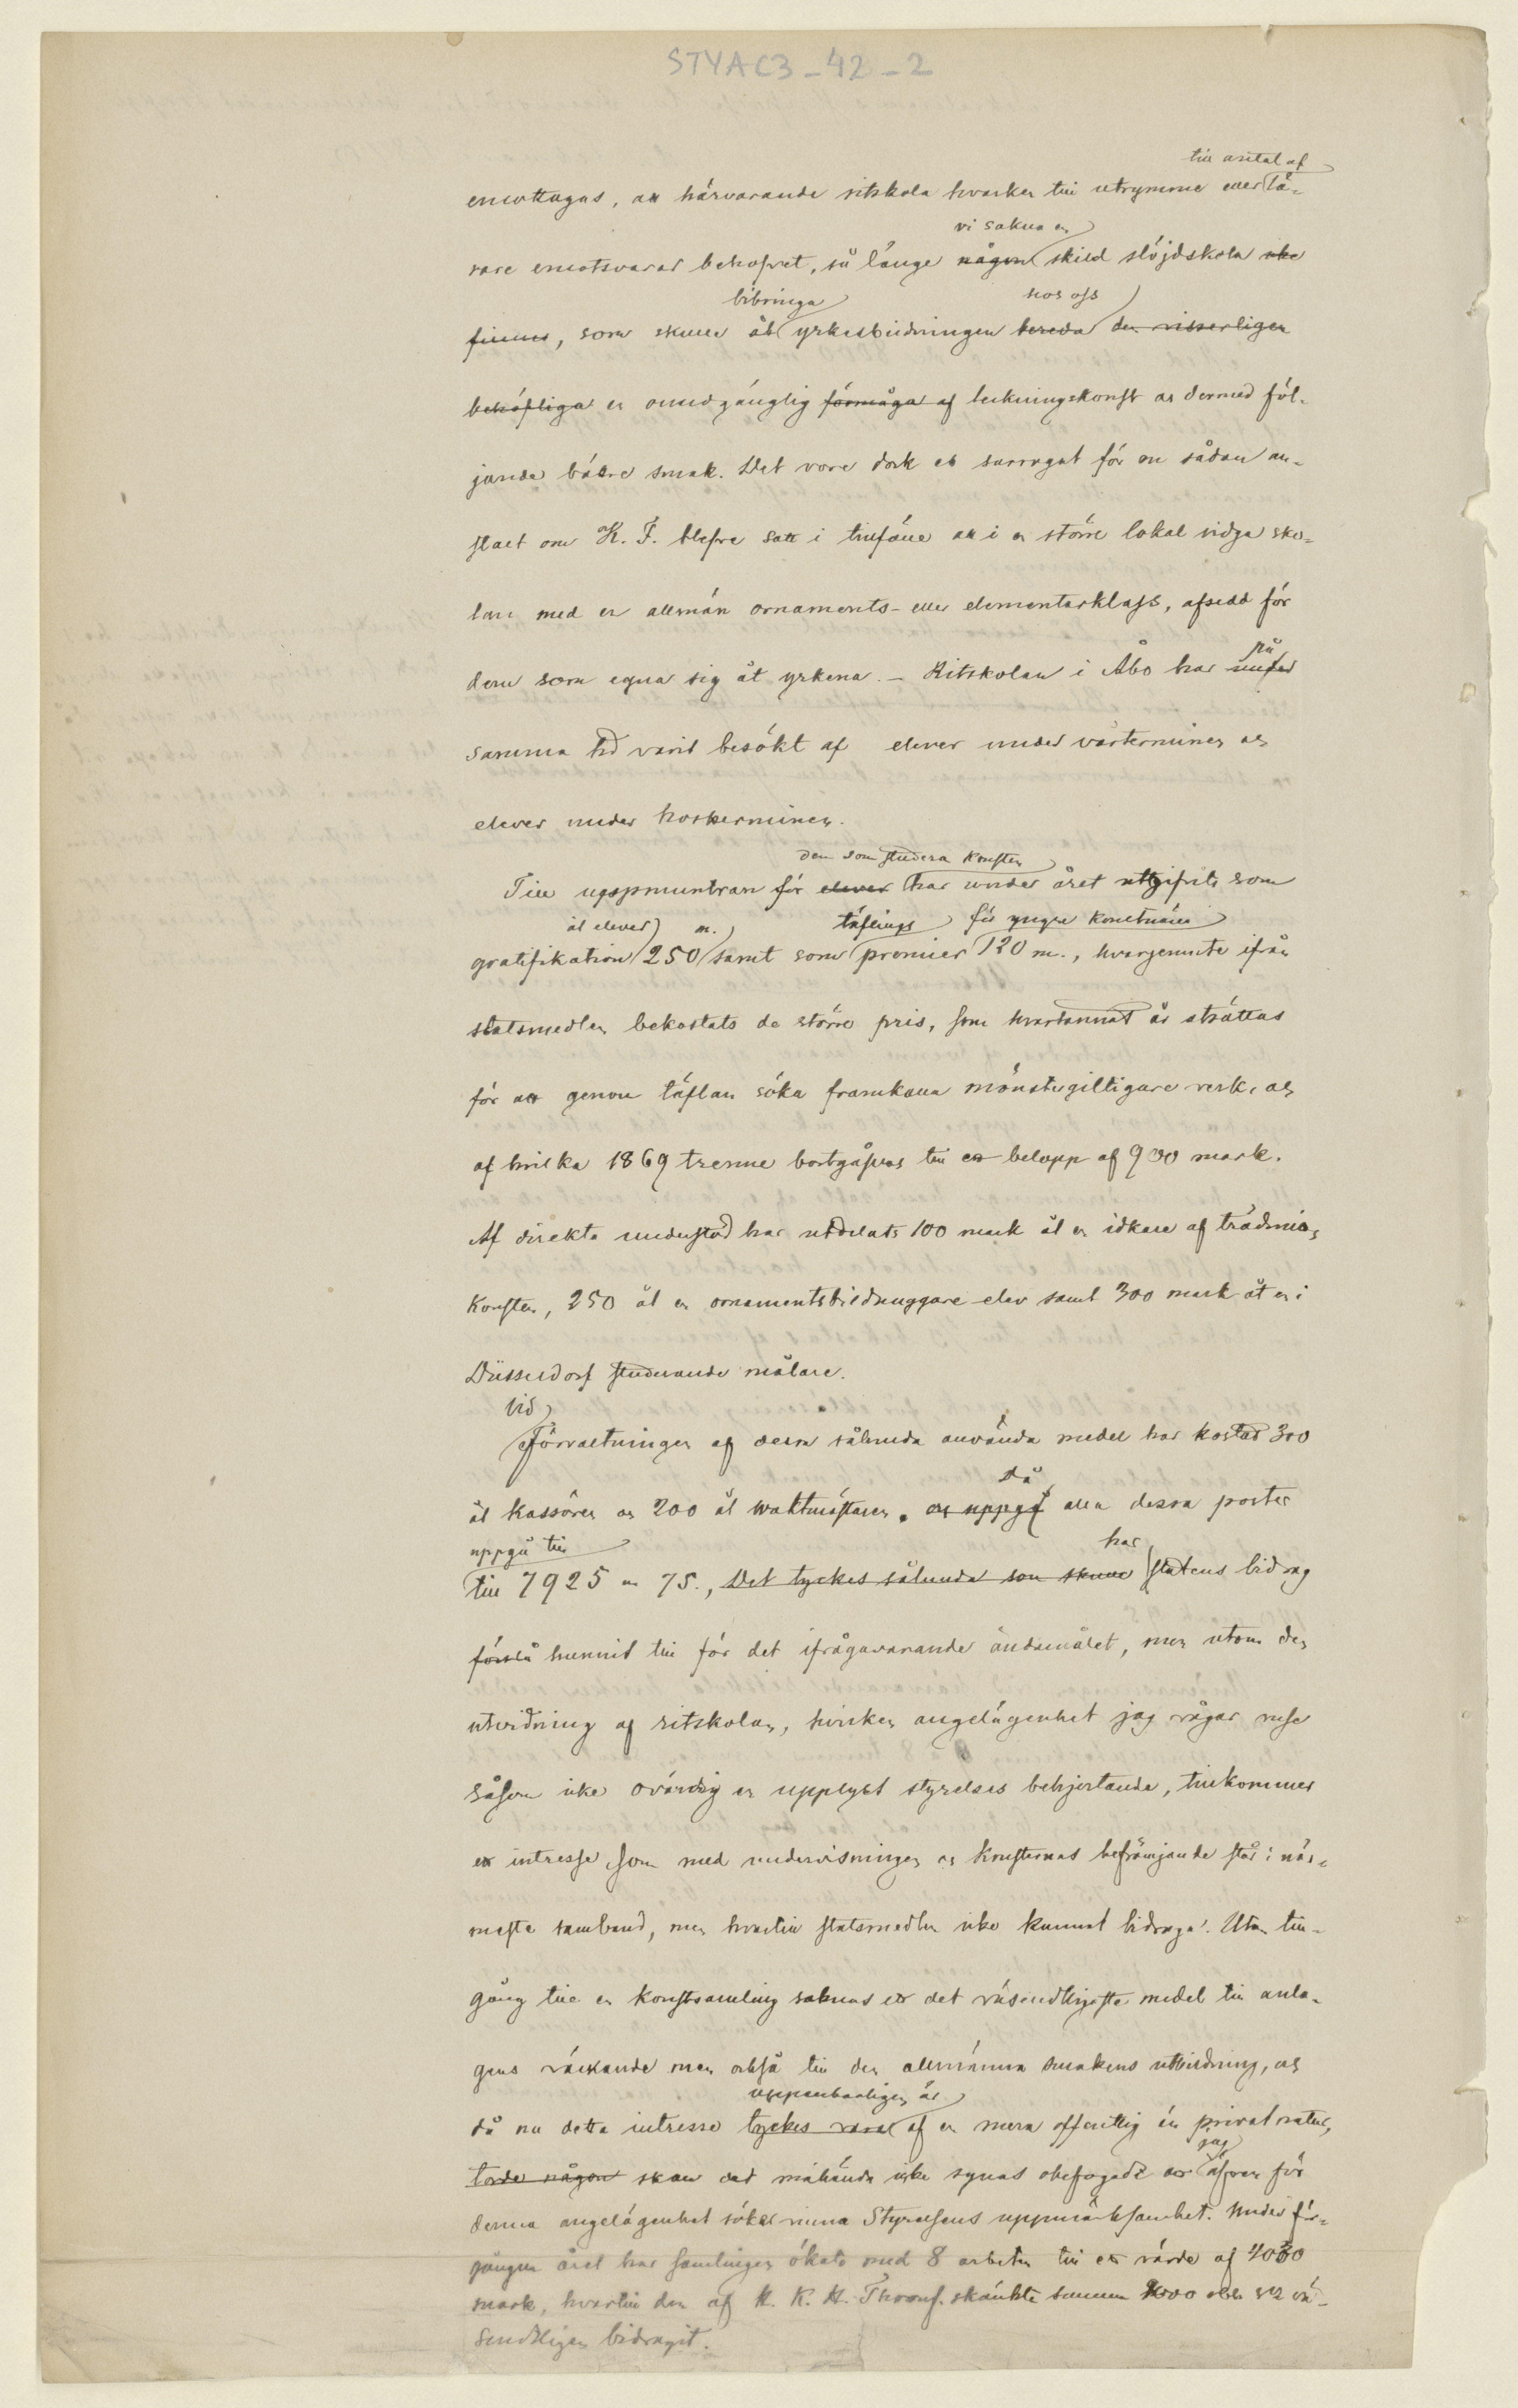 STYAC3-42-2
till antal af
emottagas, att härvarande ritskola hvarken till utrymme eller lä-
vi sakna en
rare emotsvarar behofvet, så länge någon skild slöjdskola icke
bibringa hos oss
finnes, som skulle åt yrkesbildningen bereda den visserligen
behöfliga en oundgänglig förmåga af teckningskonst och dermed föl-
jande bättre smak. Det vore dock ett surrogat för en sådan an-
stalt om K. F. blefve satt i tillfälle att i en större lokal vidga sko-
lan med en allmän ornaments- eller elementarklass, afsedd för
på
dem som egna sig åt yrkena. – Ritskolan i Åbo har under
samma tid varit besökt af elever under vårterminen och
elever under höstterminen.
dem som studera konsten
Till uppmuntran för elever har under året utgifvits som
åt elever m. täflings för yngre konstnärer
gratifikation 250 samt som premier 120 m., hvarjemnte ifrån
statsmedlen bekostats de större pris, som hvartannat år utsättas
för att genom täflan söka framkalla mönstergilltigare verk, och
af hvilka 1869 trenne bortgåfvos till ett belopp af 900 mark.
Af direkta understöd har utdelats 100 mark åt en idkare af träsnits
konsten, 250 åt en ornamentsbildhuggare elev samt 300 mark åt en i
Düsseldorf studerande målare.
Vid
Förvaltningen af dessa sålunda använda medel har kostad 300
Då
åt kassören och 200 åt waktmästaren. och uppgå alla dessa poster
uppgå till har
till 7925 m 75., Det tyckes sålunda som skulle statens bidrag
förslå hunnit till för det ifrågavarande ändamålet, men utom den
utvidning af ritskolan, hvilken angelägenhet jag vågar anse
såsom icke ovärdig en upplyst styrelses behjertande, tillkommer
ett intresse som med undervisningen och konsternas befrämjande står i när-
masta samband, men hvartill statsmedlen icke kunnat bidraga. Utan till-
gång till en konstsamling saknas ett det väsendtligaste medel till anla-
gens väckande men också till den allmänna smakens utbildning, och
uppenbarligen är
då nu detta intresse tyckes vara af en mera offentlig än privat natur,
jag
torde någon skall det måhända icke synas obefogadt att äfven för
denna angelägenhet söker vinna Styrelsens uppmärksamhet. Under för-
gången året har samlingen ökats med 8 arbeten till ett värde af 4000
mark, hvartill den af H. K. H. Thronf. skänkta summa
sendtligen bidragit.